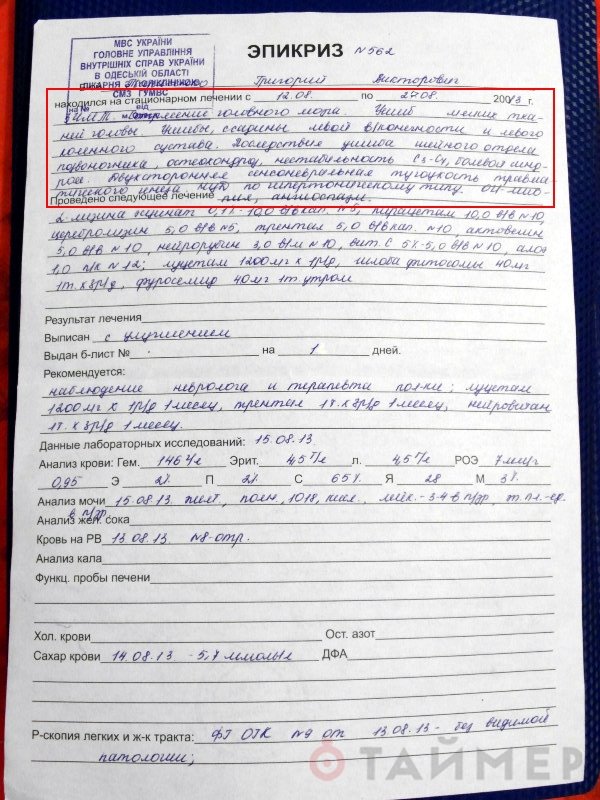 МВС УКРАЇНИ
ГОЛОВНЕ УПРАВЛІННЯ
ВНУТРІШНІХ СПРАВ УКРАЇНИ
В ОДЕСЬКІЙ ОБЛАСТІ
ЛІКАРНЯ З ПОЛІКЛІНІКОЮ
СМЗ ГУМВС
ЭПИКРИЗ N 562
Григорий Викторович
находился на стационарном лечении с 12.08. по 27.08. 2013 г.
на № від
ЗЧМТ. Сотрясение головного мозга. Ушиб мягких тка-
ней головы. Ушибы, ссадины левой в/конечности и левого
коленного сустава. Последствия ушиба шейного отдела
позвоночника, остеохондроз, нестабильность С3-С4, болевой синд-
ром. Двухсторонняя сенсоневральная тугоухость травма-
тического генеза. НЦД по гипертоническому типу. ОИ
Проведено следующее лечение ангиоспазм.
L-лизина эсцинат 0,1%-10,0 в/в кап. N5, пирацетам 10,0 в/в N10,
церебролизин 5,0 в/в N5, трентал 5,0 в/в кап. N10, актовегин
5,0 в/в N10, нейрорубин 3,0 в/м N10, вит. С 5%-5,0 в/в N10, алоэ
1,0 п/к N12; луцетам 1200мг х 1р/д, гинкго 40мг
1т. х 3р/д, фуросемид 40мг 1т. утром
Результат лечения
Выписан с улучшением
Выдан б-лист № на 1 дней.
Рекомендуется:
наблюдение невролога и терапевта пол-ки; луцетам
1200мг х 1р/д 1 месяц, трентал 1т. х 3р/д 1 месяц, нейровитан
1т. х 3р/д 1 месяц.
Данные лабораторных исследований: 15.08.13
Анализ крови: Гем. 146 г/л Эрит. 4,5 Т/л л. 4,5 Г/л РОЭ 7 мм/г
0,95 Э 2% П 2% С 65% Я 28 М 3%
Анализ мочи 15.08.13 желт., полн., 1018, кисл., лейк.-3-4 в п/зр, эп. пл.-ед.
в п/зр.
Анализ жел. сока
Кровь на РВ 13.08.13. N8-отр.
Анализ кала
Функц. пробы печени
Хол. крови Ост. азот
Сахар крови 14.08.13 - 5,7 ммоль/л ДФА
Р-скопия легких и ж-к тракта: ФГ ОГК N9 от 13.08.13- без видимой
патологии;
ТАЙМЕР